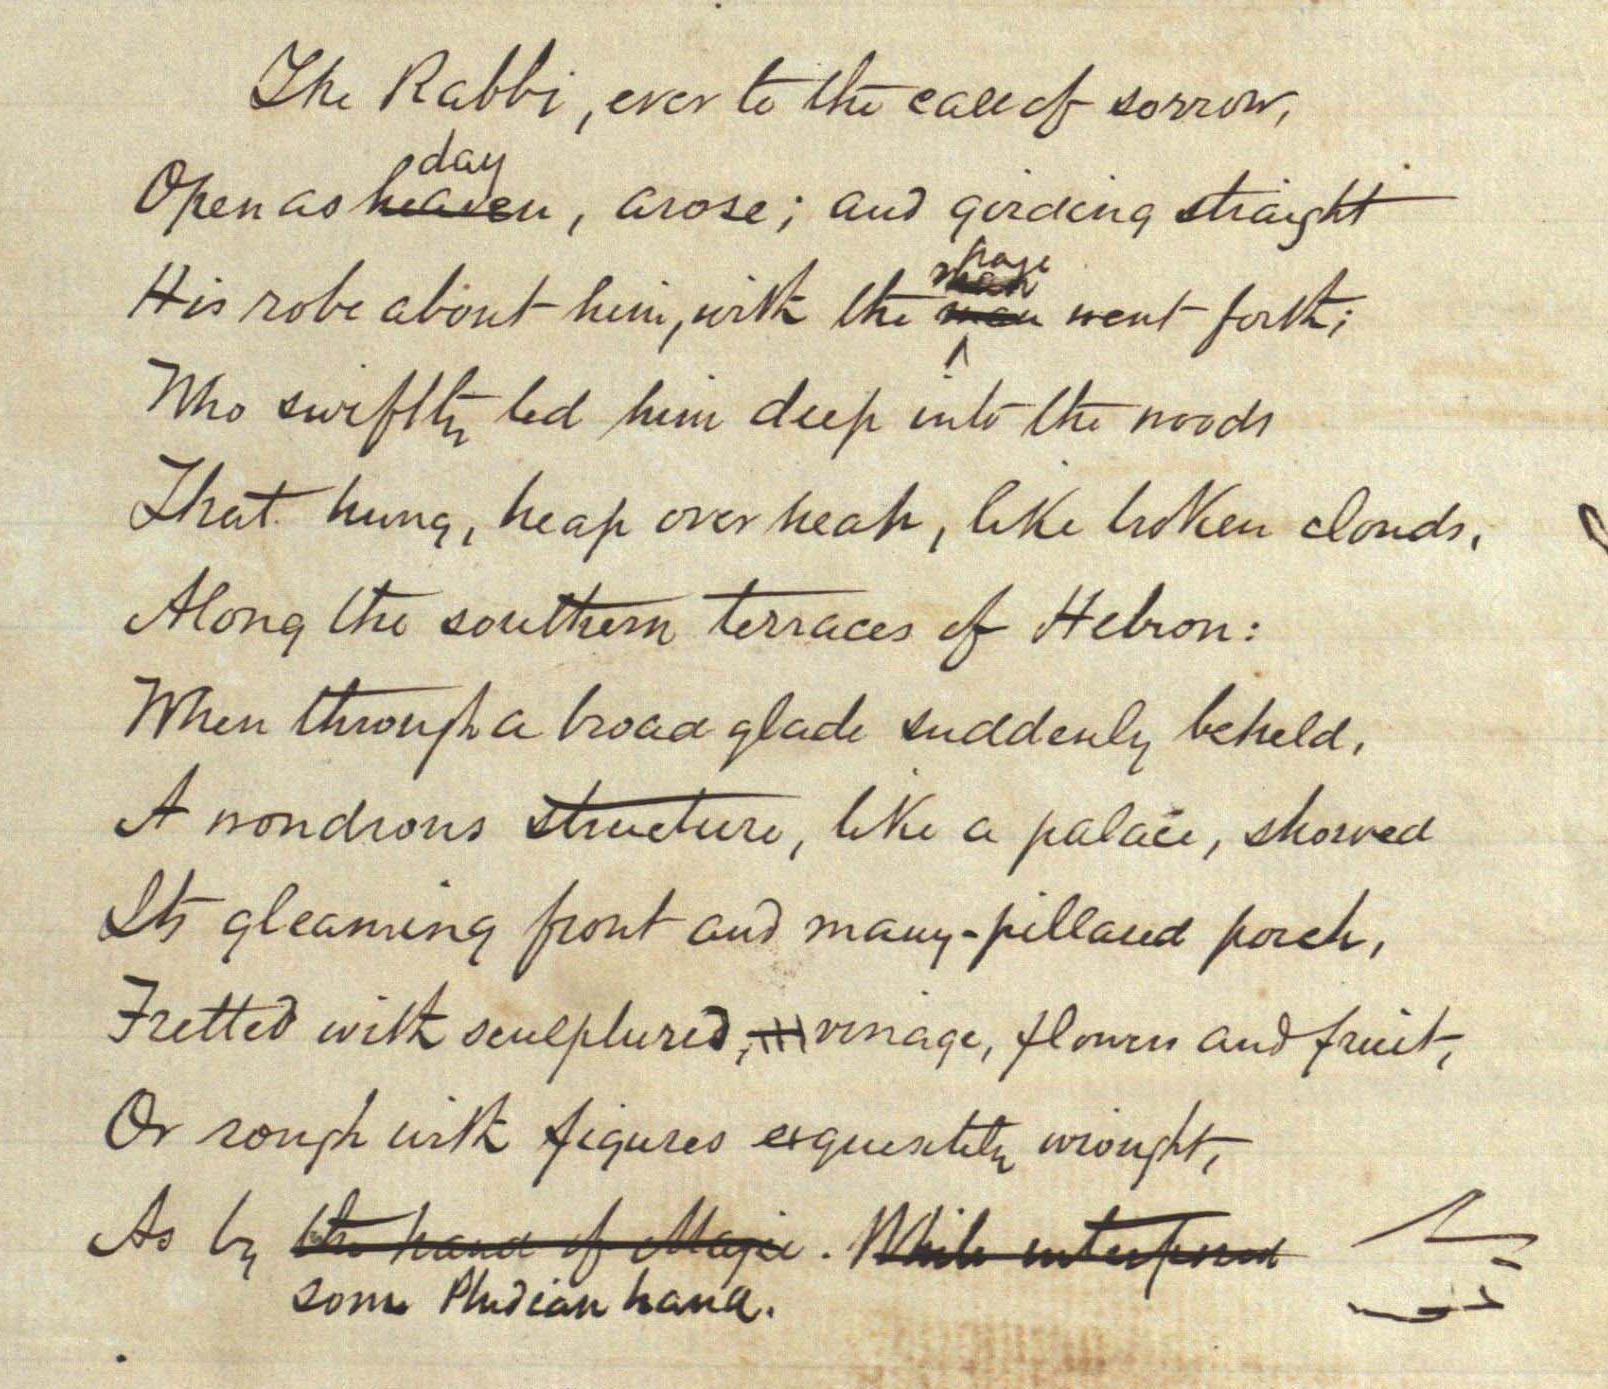 The Rabbi, ever to the call of sorrow,
day
Open as heaven, arose; and girding straight
page
man
His robe about him, with the man went forth;
Who swiftly led him deep into the woods
That hung, heap over heap, like broken clouds,
Along the southern terraces of Hebron:
When through a broad glade suddenly beheld,
A wondrous structure, like a palace, showed
Its gleaming front and many-pillared porch,
Fretted with sculptured, vinage, flowers and fruit,
Or rough with figures exquisitely wrought,
As by the hand of Magic. While interposed
some Phidian hand.